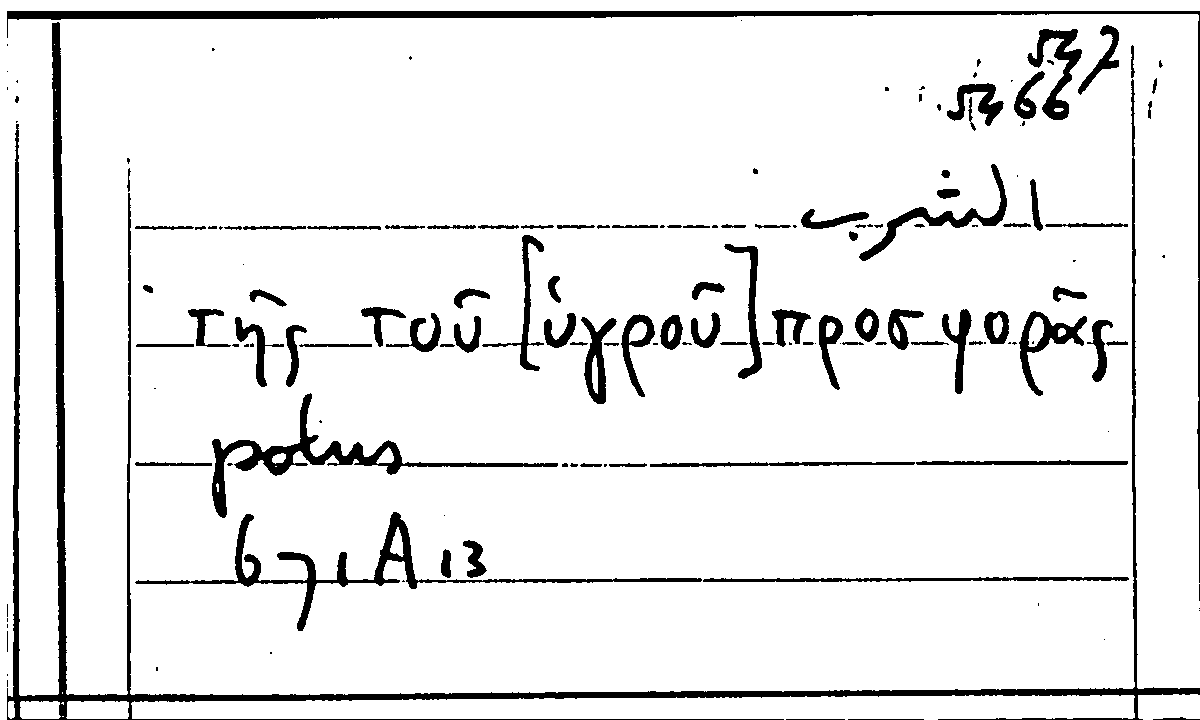 66
الشرب
τῆς τοῦ [ὑγροῦ] προσφορᾶς
potus
671 A 13